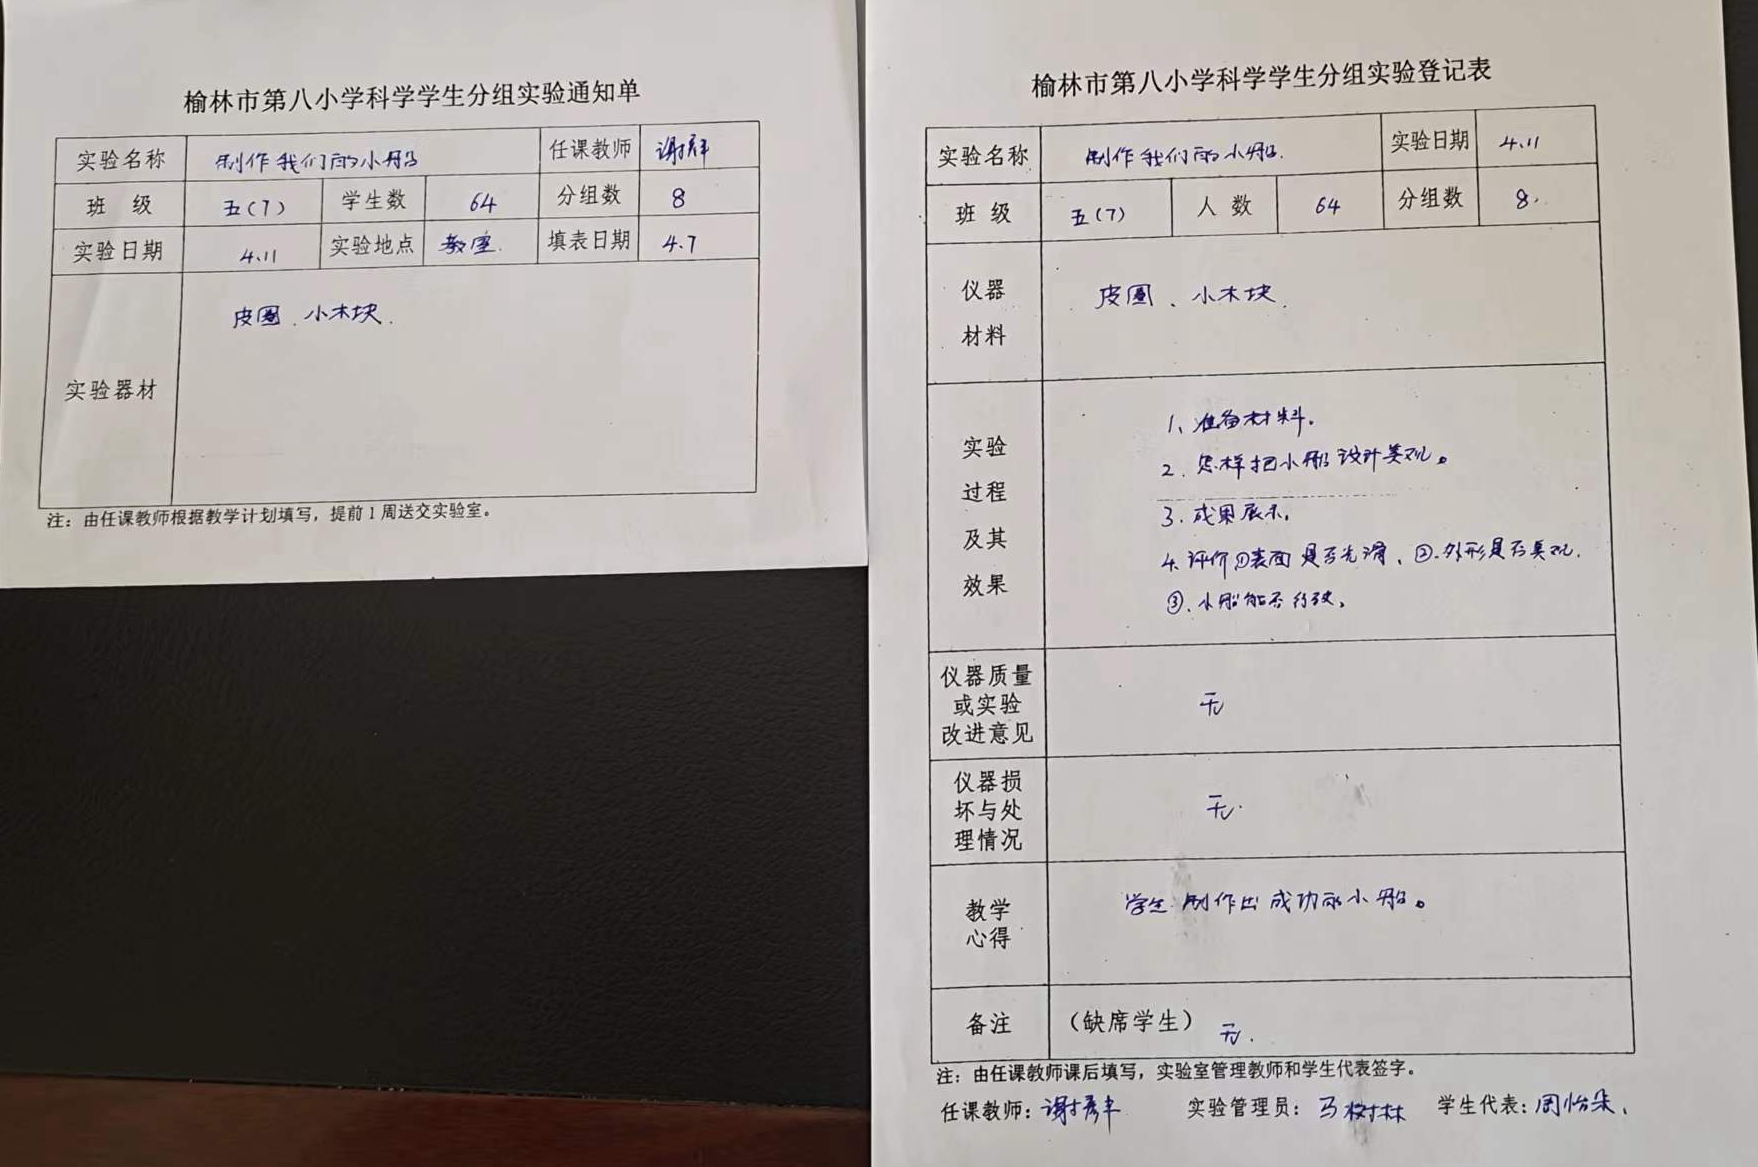 榆林市第八小学科学学生分组实验通知单
实验名称 制作我们的小船 任课教师
班 级 五(7) 学生数 64 分组数 8
实验日期 4.11 实验地点 教室. 填表日期 4.7
实验器材 皮圈、小木块.
注：由任课教师根据教学计划填写，提前1周送交实验室。
榆林市第八小学科学学生分组实验登记表
实验名称 制作我们的小船. 实验日期 4.11
班 级 五(7) 人 数 64 分组数 8.
仪器
材料
皮圈、小木块.
实验
过程
及其
效果
1、准备材料。
2、怎样把小船设计美观。
3.成果展示。
4.评价①表面是否光滑、②.外形是否美观.
③.小船能否行驶。
仪器质量
或实验
改进意见
无
仪器损
坏与处
理情况
无.
教学
心得
学生制作出成功的小船。
备注 (缺席学生) 无.
注：由任课教师课后填写，实验室管理教师和学生代表签字。
任课教师: 实验管理员: 马树林 学生代表: 周怡朵.